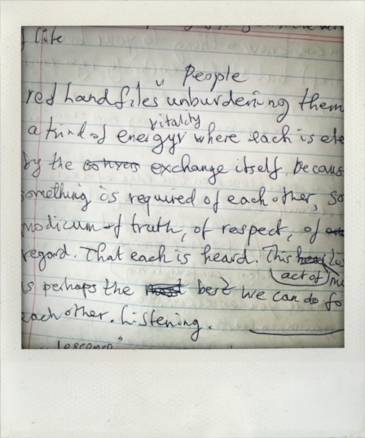 life
People
red hand files unburdening them
a kind of energy vitality where each is
by the exchange itself. Becaus
omething is required of each other, so
modicum of truth, of respect, of
regard. That each is heard. This
act of
is perhaps the best we can do fo
each other. Listening.